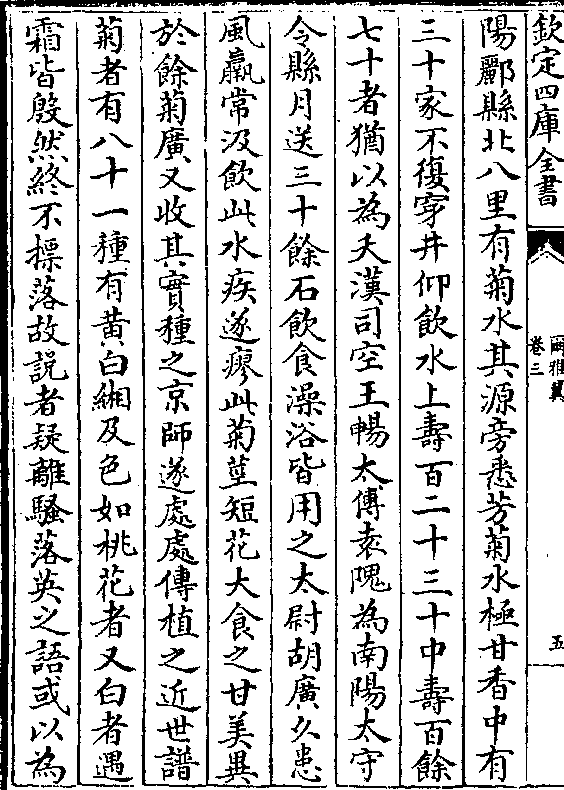 欽定四庫全書
爾雅翼
卷三
五
陽酈縣北八里有菊水其源旁悉芳菊水極甘香中有
三十家不復穿井仰飲水上壽百二十三十中壽百餘
七十者猶以為夭漢司空王暢太傅袁隗為南陽太守
令縣月送三十餘石飲食澡浴皆用之太尉胡廣久患
風羸常汲飲此水疾遂瘳此菊莖短花大食之甘美異
於餘菊廣又收其實種之京師遂處處傳植之近世譜
菊者有八十一種有黄白緗及色如桃花者又白者遇
霜皆殷然終不摽落故說者疑離騷落英之語或以為